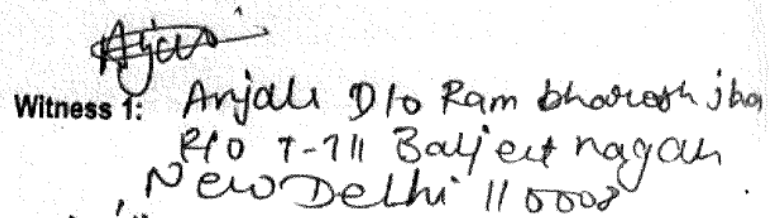 Anjali
Witness 1: Anjali D/o Ram bharosh jha
R/o T-711 Baljeet nagar
New Delhi 110008